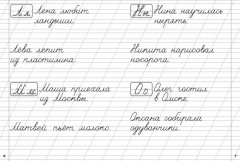 Лл Лена любит
ландыши.
Лева лепит
из пластилина.
Мм Маша приехала
из Москвы.
Матвей пьёт молоко.
Нн Нина научилась
нырять.
Никита нарисовал
носорога.
Оо Олег гостил
в Омске.
Оксана собирала
одуванчики.